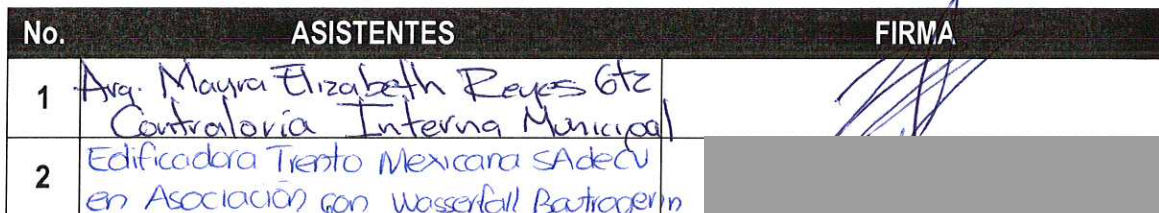 No. ASISTENTES FIRMA
1 Arq. Mayra Elizabeth Reyes Gtz
Contraloría Interna Municipal
2 Edificadora Trento Mexicana SAdeCV
en Asociación con Wasserfall Bautragerin